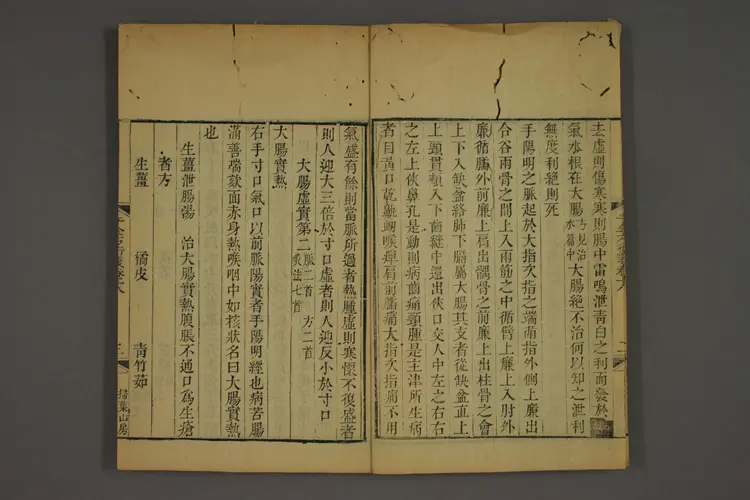 去虛則傷寒寒則腸中雷鳴泄青白之利而發於
氣水根在大腸方見治水篇中大腸絕不治何以知之泄利
無度利絕則死
手陽明之脈起於大指次指之端循指外側上廉出
合谷兩骨之間上入兩筋之中循臂上廉上入肘外
廉循臑外前廉上肩出髃骨之前廉上出柱骨之會
上下入缺盆絡肺下膈屬大腸其支者從缺盆直上
上頸貫頰入下齒縫中還出俠口交人中左之右右
之左上俠鼻孔是動則病齒痛頸腫是主津所生病
者目黃口乾鼽衄喉痺肩前臑痛大指次指痛不用
氣盛有餘則當脈所過者熱腫虛則寒慄不復盛者
則人迎大三倍於寸口虛者則人迎反小於寸口
大腸虛實第二 脈二首 方二首 灸法七首
大腸實熱
右手寸口氣口以前脈陽實者手陽明經也病苦腸
滿善喘欬面赤身熱喉咽中如核狀名曰大腸實熱
也
生薑泄腸湯 治大腸實熱腹脹不通口為生瘡
者方
生薑 橘皮 青竹茹
掃葉山房